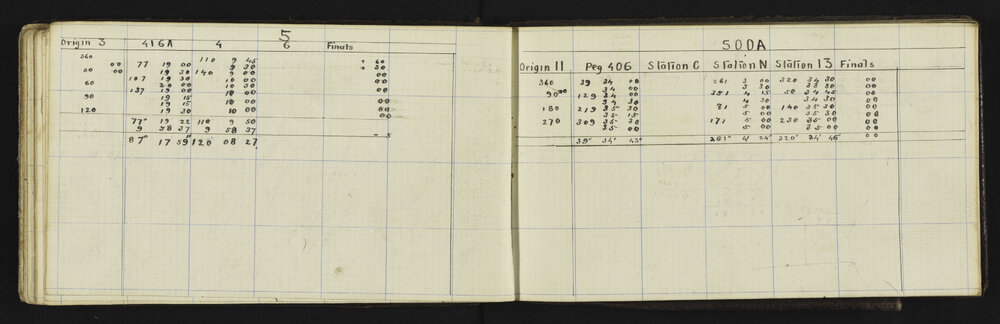 5
Origin 3 416A 4 6 Finals
360 110 9 45 + 60
00 77 19 00 9 30 + 30
19 30 140 9 00 00
00 00 107 19 30 10 00 00
60 20 00 10 30 00
137 19 00 10 00 00
90 19 15 10 00 00
19 15 10 00 00
120 19 30 10 00 00
00
77° 19 22 110 9 50
9 58 37 9 58 37 - 5
87° 17 59" 120 08 27
500A
Origin 11 Peg 406 Station C Station N Station 13 Finals
360 39 34 00 261 3 00 320 34 30 00
34 00 3 30 33 30 00
90 00 129 34 00 351 4 15 50 34 45 00
34 30 4 30 34 30 00
180 219 35 30 81 5 00 140 35 30 00
35 15 5 00 35 30 00
270 309 35 30 171 5 00 230 35 00 00
35 00 5 00 35 00 00
39° 34' 43" 261° 4 24" 320° 34' 46" 00